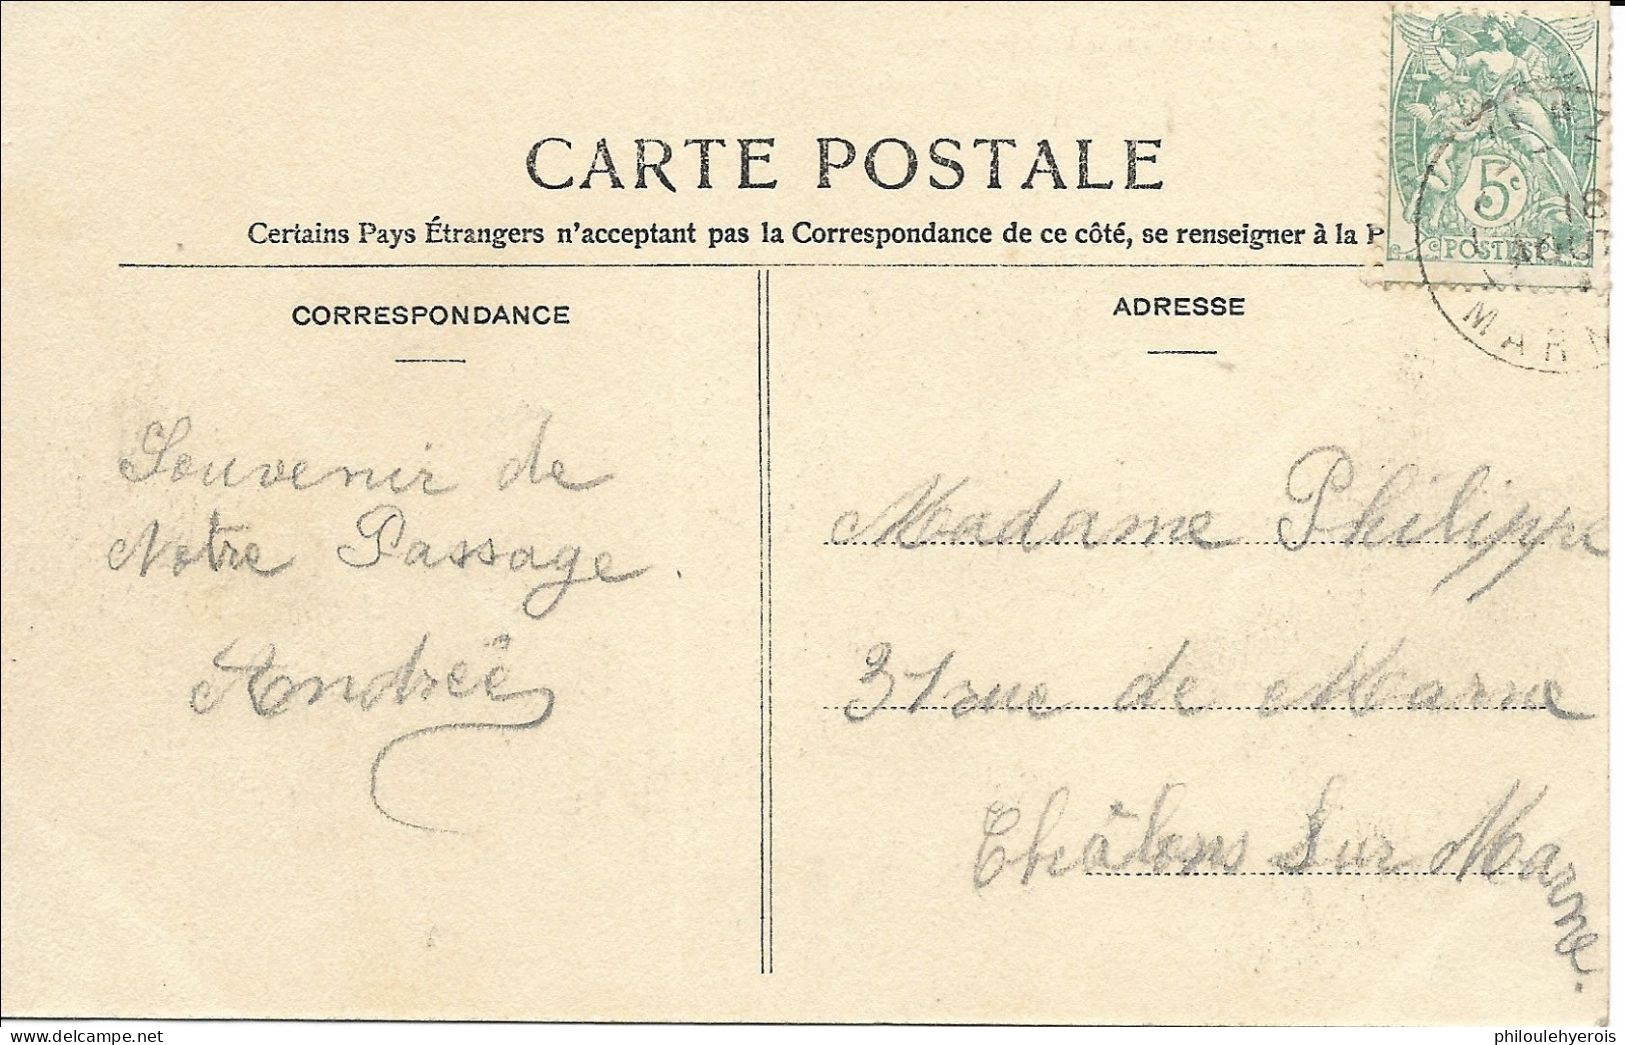 CARTE POSTALE
Certains Pays Étrangers n'acceptant pas la Correspondance de ce côté, se renseigner à la P
CORRESPONDANCE
ADRESSE
5c
POSTES
MARN
Souvenir de
Notre Passage.
Andrée
Madame Philippe
31 rue de Marne
Châlons Sur Marne.
philoulehyerois